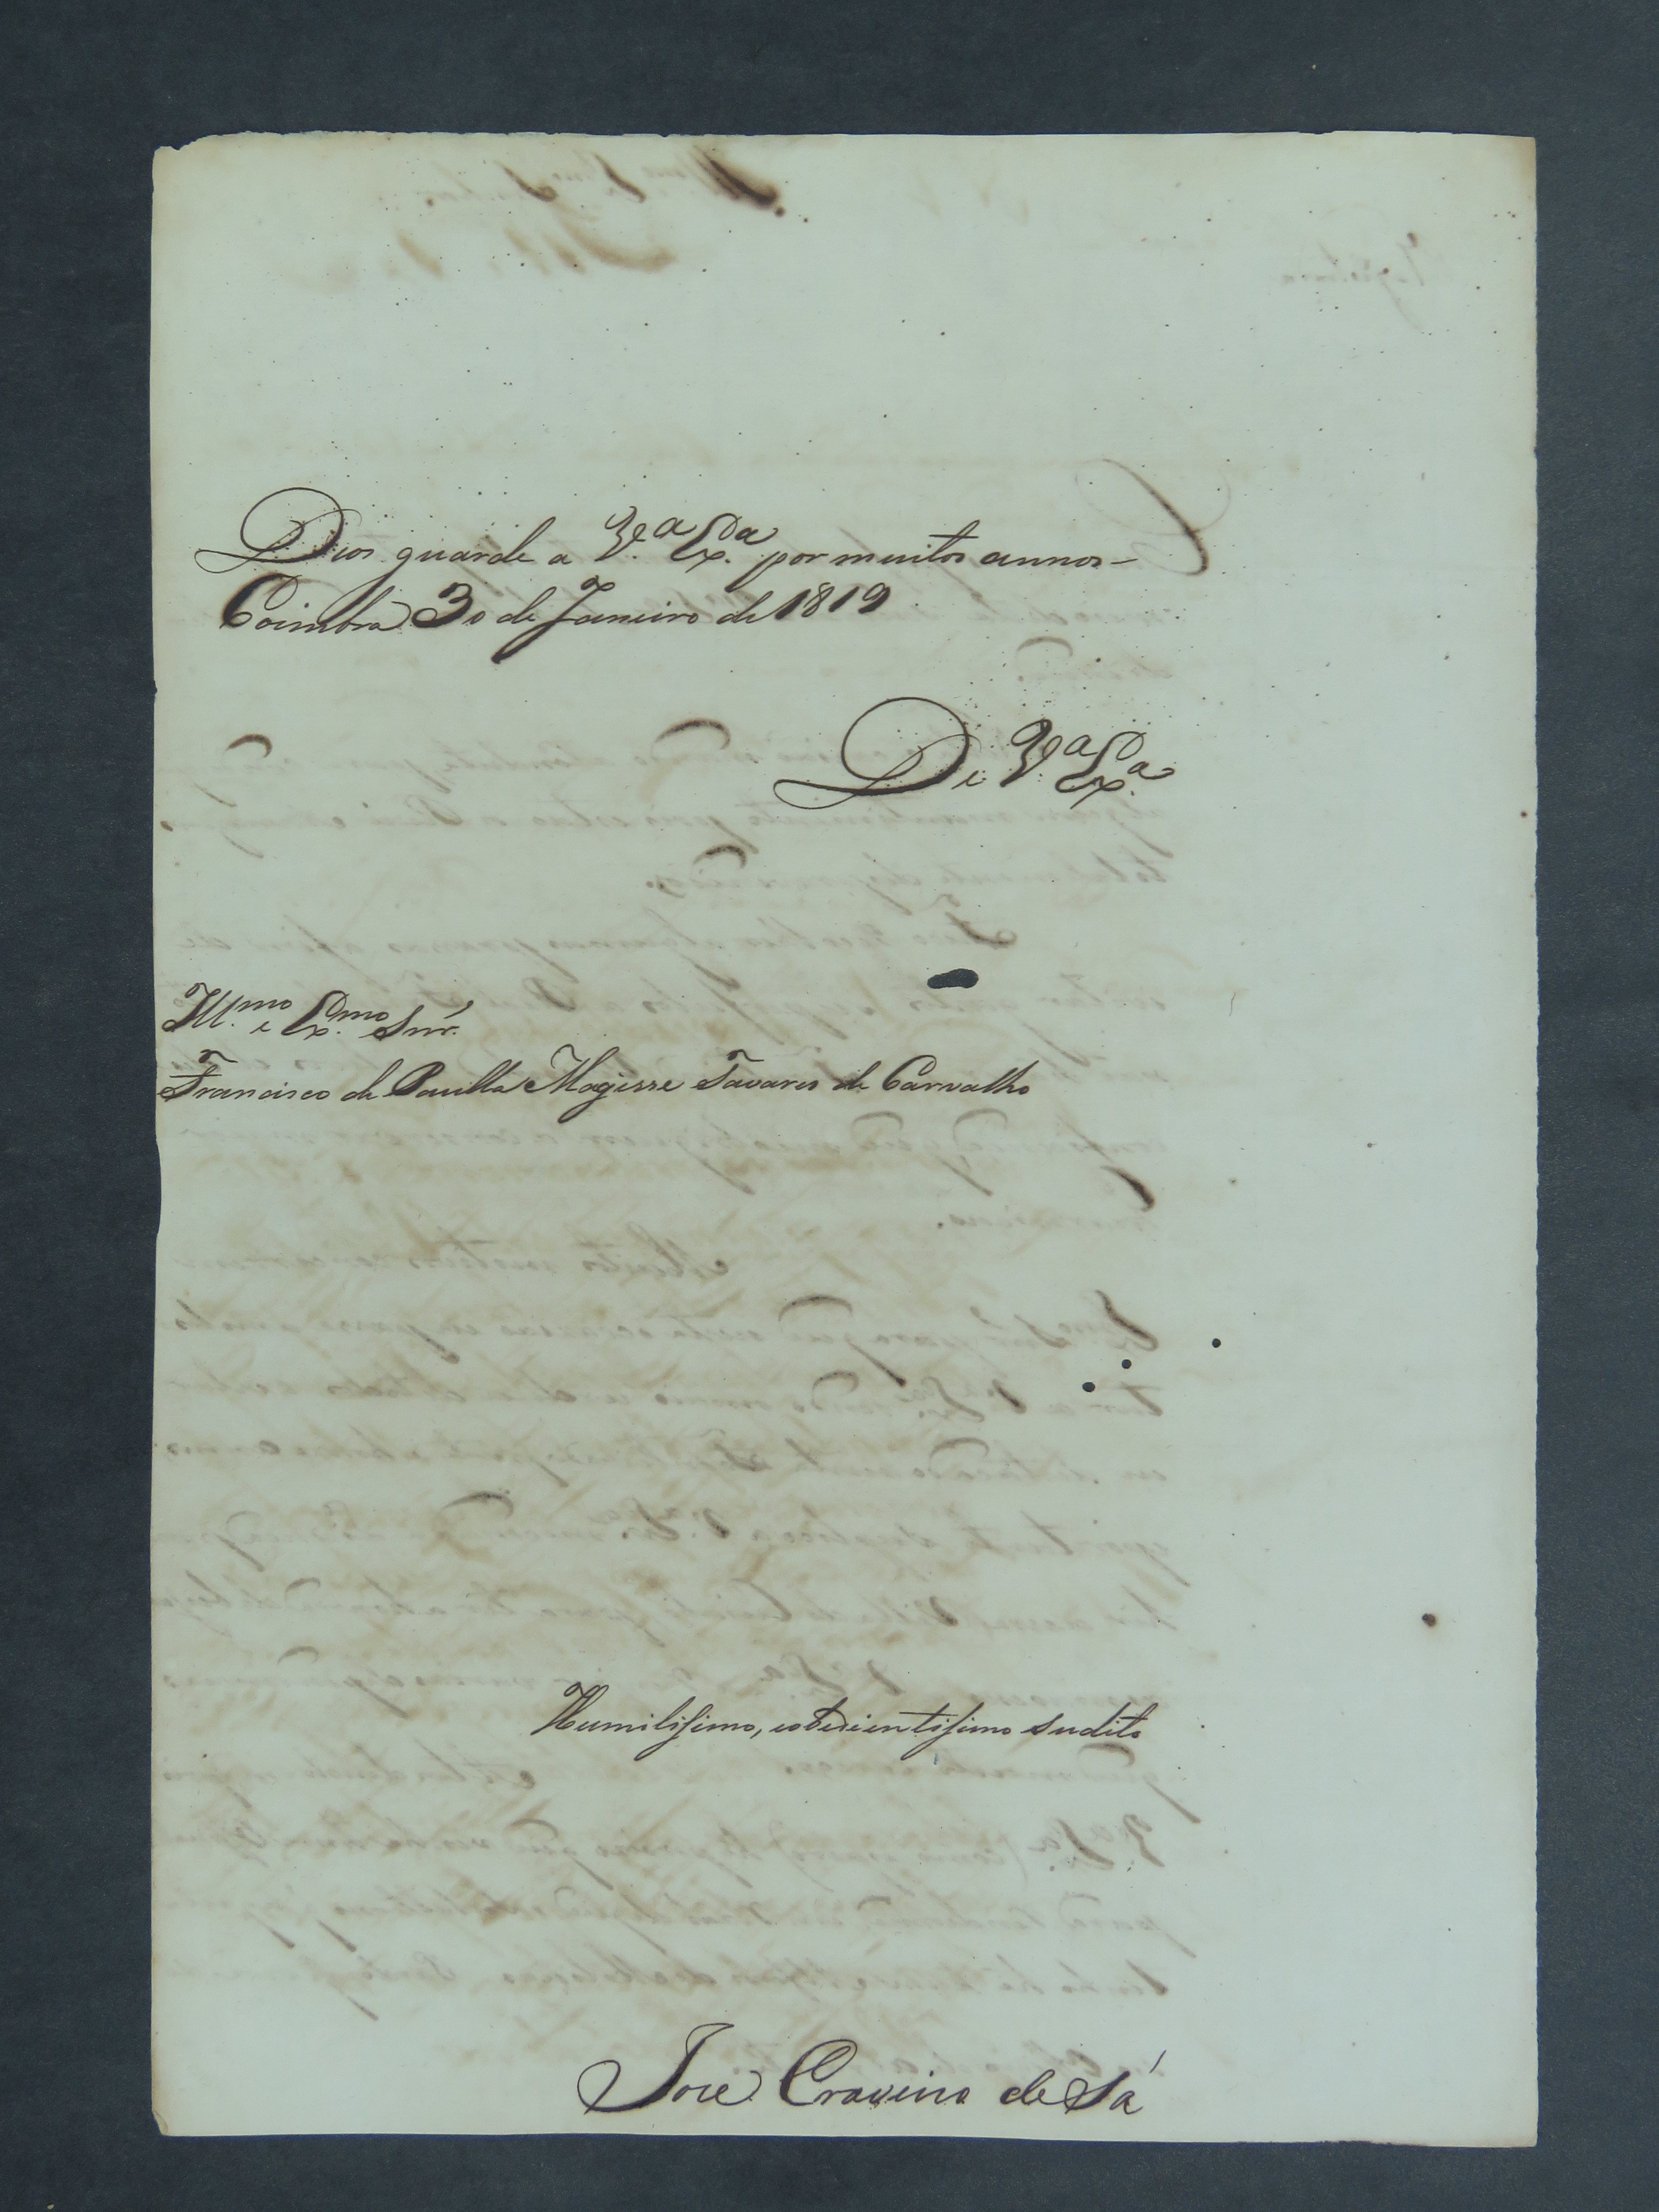 Deos guarde a V.ª Ex.ª por muitos annos -
Coimbra 30 de Janeiro de 1819
De V.ª Ex.ª
Ill.mo e Ex.mo Snr.
Francisco de Paulla Magesse Tavares de Carvalho
Humilissimo, e obedientissimo sudito
Jose Craveiro de Sá